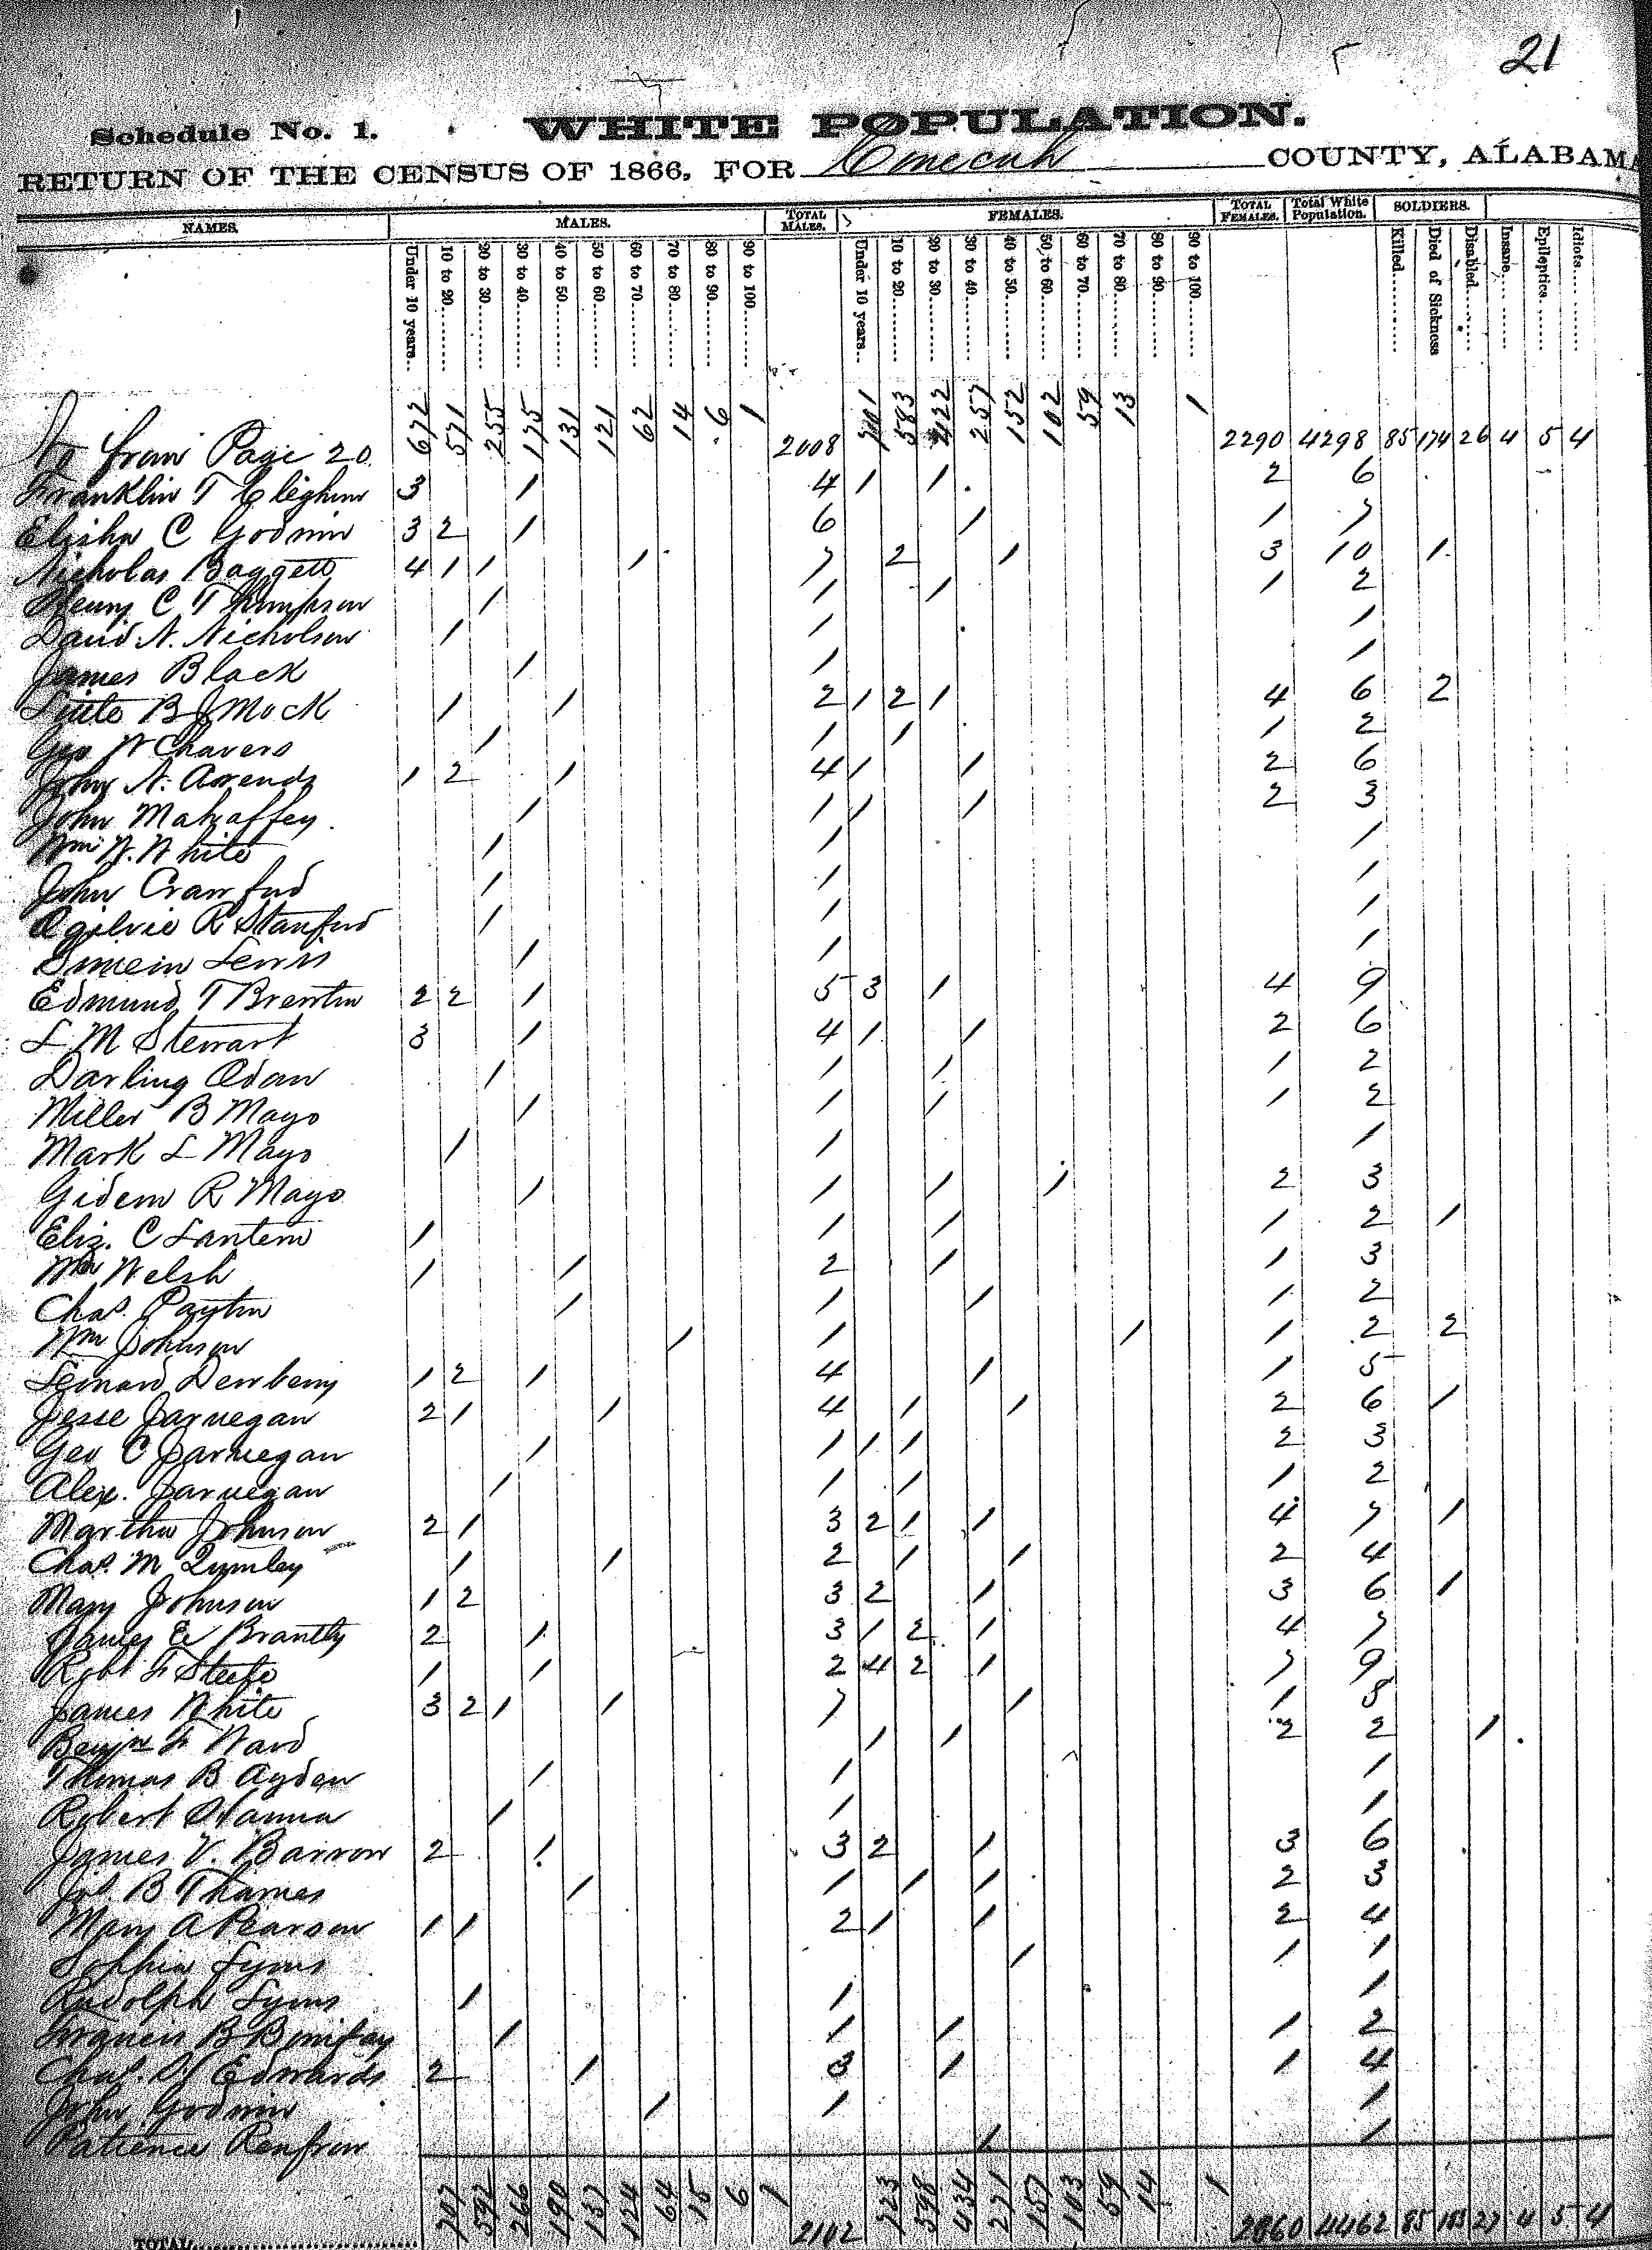 21
Schedule No. 1. WHITE POPULATION.
RETURN OF THE CENSUS OF 1866, FOR Conecuh COUNTY, ALABAMA
NAMES. MALES. TOTAL MALES. FEMALES. TOTAL FEMALES. Total White Population. SOLDIERS.
Under 10 years.. 10 to 20........ 20 to 30........ 30 to 40........ 40 to 50........ 50 to 60........ 60 to 70........ 70 to 80........ 80 to 90........ 90 to 100........ Under 10 years.. 10 to 20........ 20 to 30........ 30 to 40........ 40 to 50........ 50 to 60........ 60 to 70........ 70 to 80........ 80 to 90........ 90 to 100........ Killed........ Died of Sickness Disabled........ Insane........ Epileptics........ Idiots........
from Page 20 672 571 255 175 131 121 62 14 6 1 2008 701 583 422 257 152 102 59 13 1 2290 4298 85 174 26 4 5 4
Franklin T Cleghorn 3 1 4 1 1 2 6
Elisha C Godwin 3 2 1 6 1 1 7
Nicholas Baggett 4 1 1 1 7 2 1 3 10 1
Henry C Thompson 1 1 1 1 2
David N. Nicholson 1 1 1
James Black 1 1 1
B J Mock 1 1 2 1 2 1 4 6 2
Geo W Chavers 1 1 1 1 2
John N. 1 2 1 4 1 1 2 6
John Mahaffey 1 1 1 1 2 3
Wm W. White 1 1 1
John Crawford 1 1 1
Ogilvie R Stanford 1 1 1
Simein Lewis 1 1 1
Edmund T Brewton 2 2 1 5 3 1 4 9
L M Stewart 3 1 4 1 1 2 6
Darling Odom 1 1 1 1 2
Miller B Mayo 1 1 1 1 2
Mark L Mayo 1 1 1
Gideon R Mayo 1 1 1 1 2 3
Eliz. C Lantern 1 1 1 1 2 1
Wm Welsh 1 1 2 1 1 3
Chas. Payton 1 1 1 1 2
Wm Johnson 1 1 1 1 2 2
Leonard Dewberry 1 2 1 4 1 1 5
Jesse Jarnegan 2 1 1 4 1 1 2 6 1
Geo C Jarnegan 1 1 1 1 2 3
Alex. Jarnegan 1 1 1 1 2
Martha Johnson 2 1 3 2 1 1 4 7 1
Chas. M Qumley 1 1 2 1 1 2 4
Mary Johnson 1 2 3 2 1 3 6 1
James E Brantly 2 1 3 1 2 1 4 7
Robt F Steele 1 1 2 4 2 1 7 9
James White 3 2 1 1 7 1 1 8
Benjn F Ward 1 1 2 2 1
Thomas B Ayden 1 1 1
Robert Hanna 1 1 1
James V. Barrow 2 1 3 2 1 3 6
Jos. B Thames 1 1 1 1 2 3
Mary A Pearson 1 1 2 1 1 2 4
Sophia Lyons 1 1 1
Rudolph Lyons 1 1 1
Francis B Bonifay 1 1 1 1 2
Chas. W Edwards 2 1 3 1 1 4
John Godwin 1 1 1
Patience Renfrow 1 1
TOTAL........ 707 592 266 190 137 124 64 15 6 1 2102 723 598 434 271 157 103 59 14 1 2360 4462 85 183 27 4 5 4